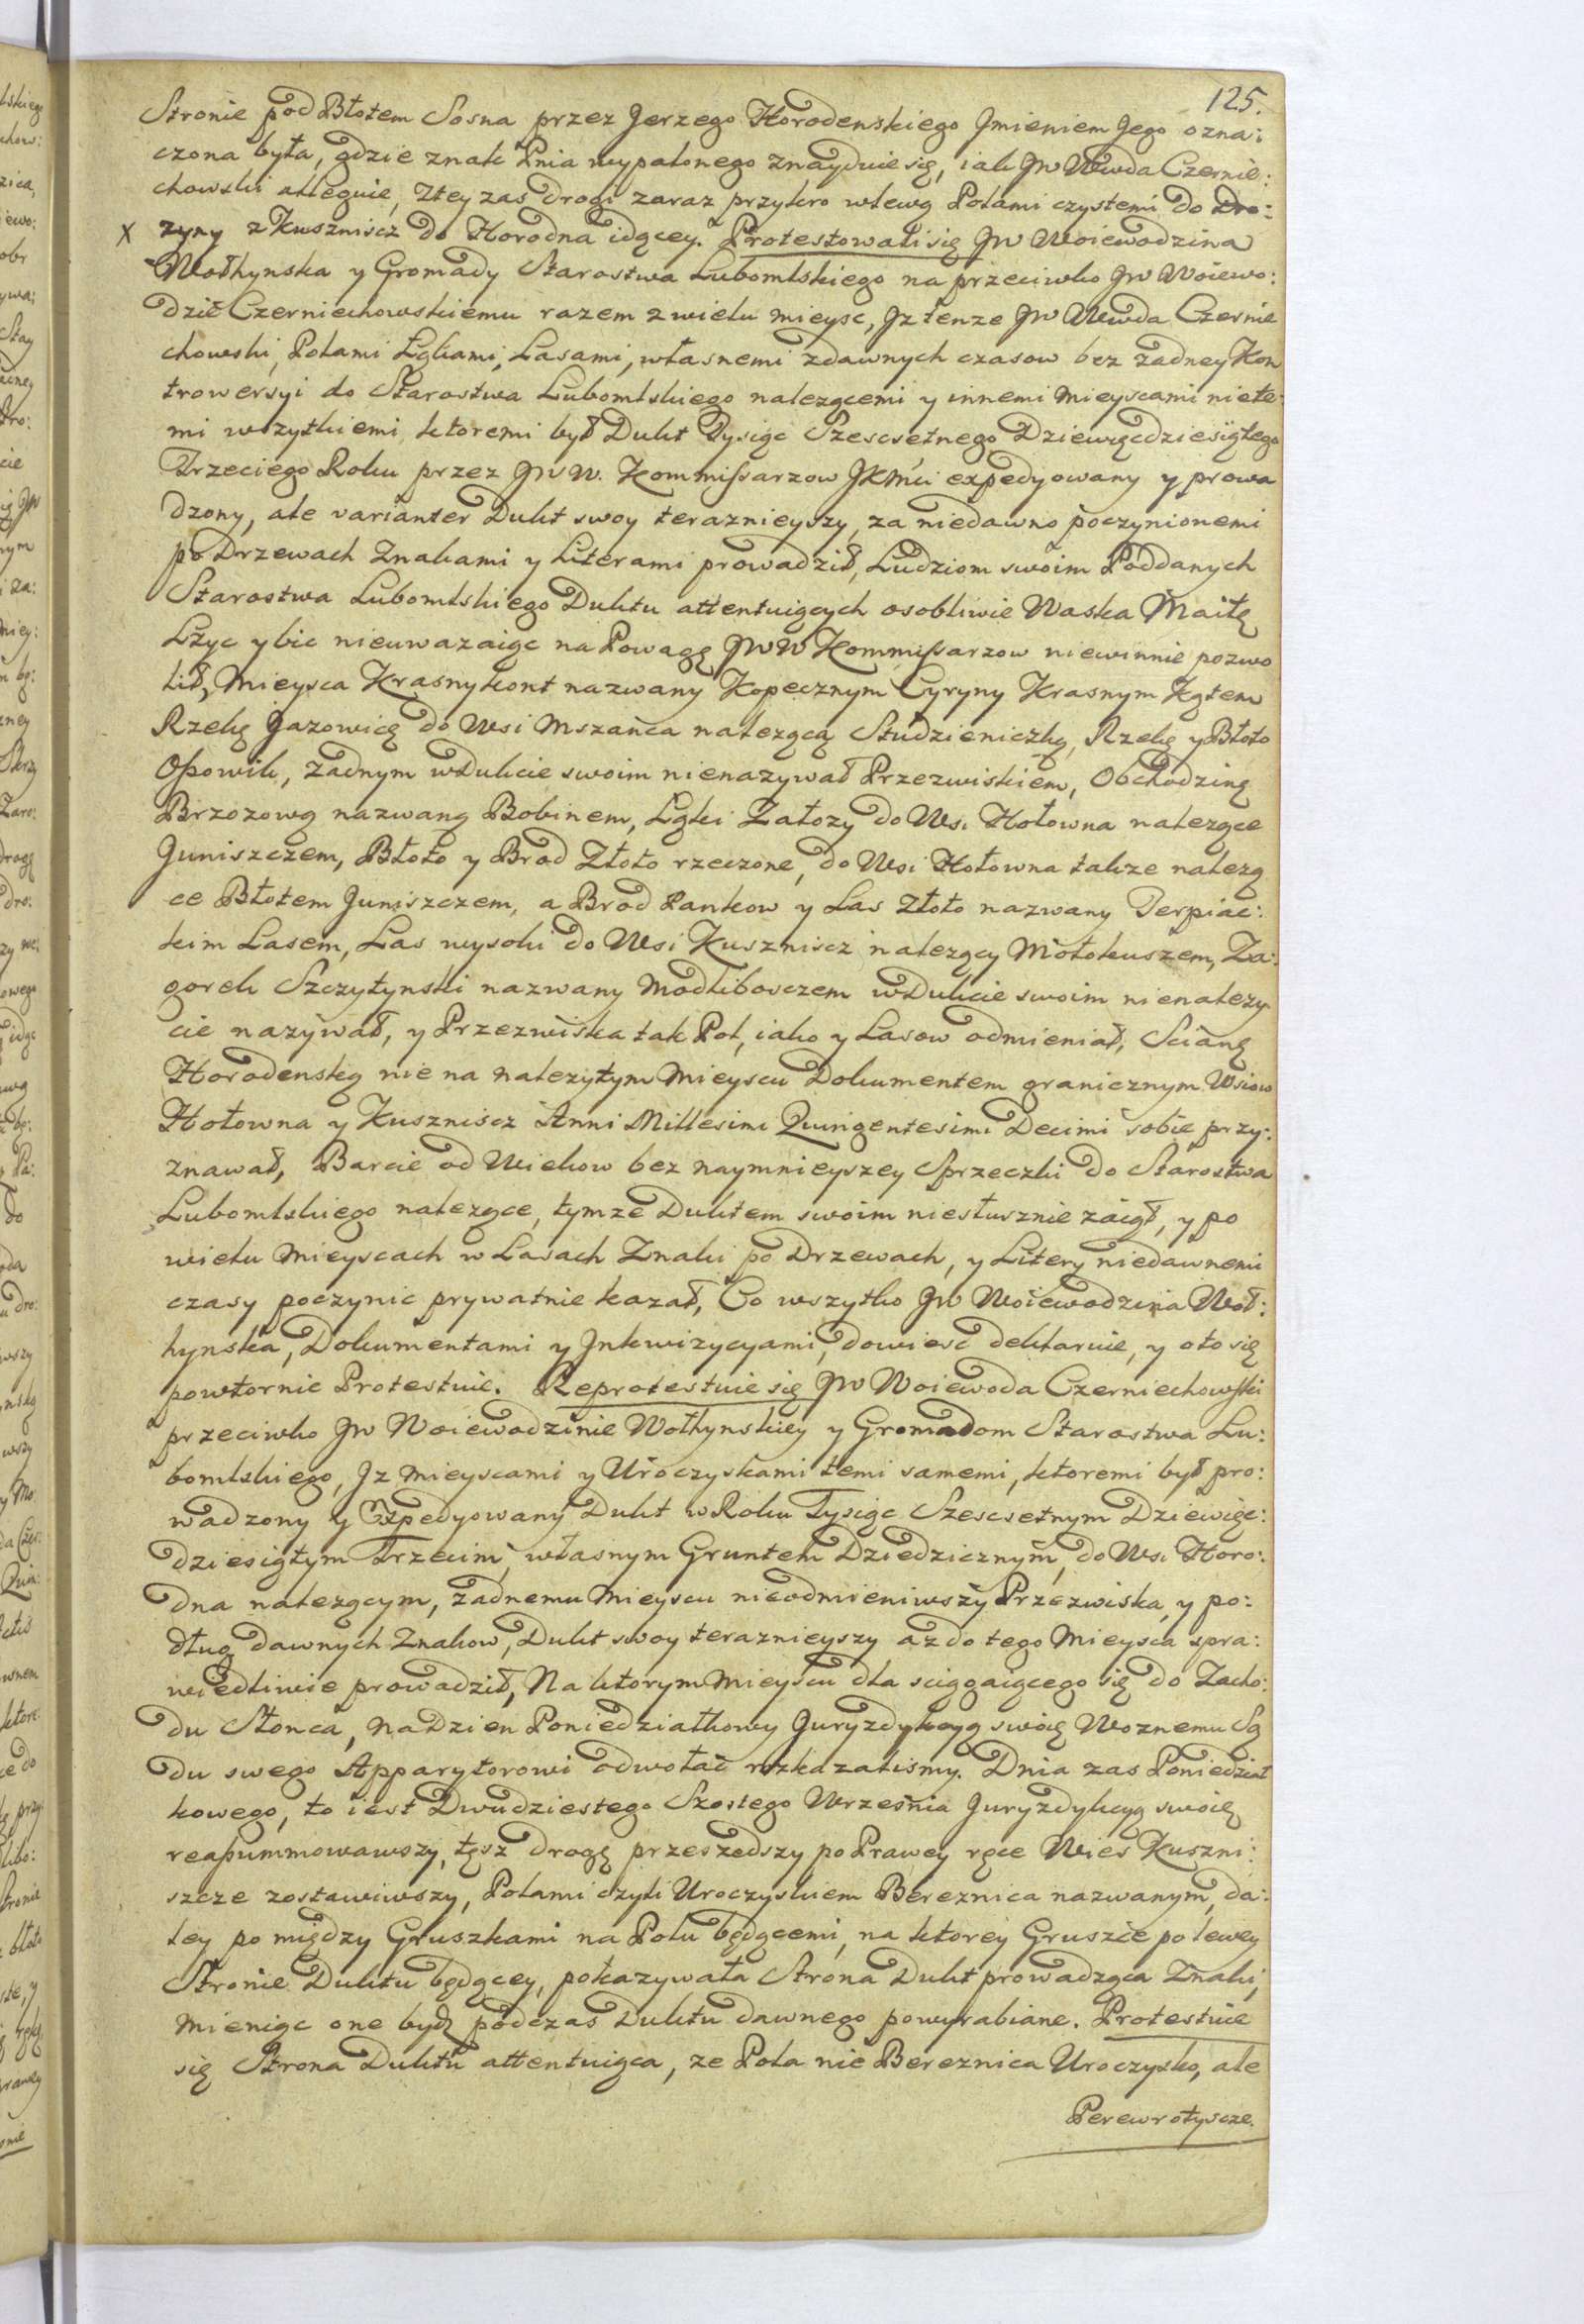 125.
Stronie pod Błotem Sosna przez Jerzego Horodenskiego Jmieniem Jego ozna:
czona była, gdzie znak Pnia wypalonego znayduie się, iak JW Wwda Czernie:
chowski alleguie, Ztey zas Drogi zaraz przykro wlewą Polami czystemi do Dro:
X zyny z Kuszniscz do Horodna idącey. Protestowali się JW Woiewodzina
Wołhynska y Gromady Starostwa Lubomlskiego na przeciwko JW Woiewo:
dzie Czerniechowskiemu razem z wielu mieysc, Jz tenze JW Wwda Czernie
chowski, Polami Łąkami, Lasami, własnemi zdawnych czasow bez zadney Kon
trowersyi do Starostwa Lubomlskiego nalezącemi y innemi Mieyscami niete:
mi wszytkiemi, ktoremi był Dukt Tysiąc Szescsetnego Dziewięcdziesiątego
Trzeciego Roku przez JWW. Kommissarzow JKMci expedyowany y prowa
dzony, ale varianter Dukt swoy teraznieyszy, za niedawno poczynionemi
po Drzewach Znakami y Literami prowadził, Ludziom swoim Poddanych
Starostwa Lubomlskiego Duktu attentuiących osobliwie Waska Maitę
Lzyc y bic nieuwazaiąc na Powagę JWW Kommissarzow niewinnie pozwo
lił, Mieysca Krasnykont nazwany Kopecznym Cyryny Krasnym Kątem
Rzekę Jazowicę do Wsi Mszanca nalezącą Studzieniczką, Rzekę y Błoto
Ossowik, zadnym w Dukcie swoim nienazywał Przezwiskiem, Obchodzinę
Brzozową nazwaną Bobinem, Łąki Załozy do Wsi Hołowna nalezące
Juniszczem, Błoto y Brod Złoto rzeczone, do Wsi Hołowna takze nalezą
ce Błotem Juniszczem, a Brod Pankow y Las Złoto nazwany Terpiac:
kim Lasem, Las wysoki do Wsi Kuszniscz nalezący Mołokuszem, Za:
gorek Szczytynski nazwany Modlibosczem w Dukcie swoim nienalezy
cie nazywał, y Przezwiska tak Pol, iako y Lasow odmieniał, Scianę
Horodenską nie na nalezytym Mieyscu Dokumentem granicznym Wsiow
Hołowna y Kuszniscz Anni Millesimi Quingentesimi Decimi sobie przy:
znawał, Barcie od Wiekow bez naymnieyszey Sprzeczki do Starostwa
Lubomlskiego nalezące, tymze Duktem swoim niesłusznie zaiął, y po
wielu Mieyscach w Lasach Znaki po Drzewach, y Litery niedawnemi
czasy poczynic prywatnie kazał, Co wszytko JW Woiewodzina Woł:
hynska, Dokumentami y Jnkwizycyami, dowiesc deklaruie, y oto się
powtornie Protestuie. Reprotestuie się JW Woiewoda Czerniechowski
przeciwko JW Woiewodzinie Wołhynskiey y Gromadom Starostwa Lu:
bomlskiego, Jz Mieyscami y Uroczyskami temi samemi, ktoremi był pro:
wadzony y Expedyowany Dukt w Roku Tysiąc Szescsetnym Dziewięc:
dziesiątym Trzecim, własnym Gruntem Dziedzicznym, do Wsi Horo:
dna nalezącym, zadnemu Mieyscu nieodmieniwszy Przezwiska, y po:
dług dawnych Znakow, Dukt swoy teraznieyszy az do tego Mieysca spra:
wiedliwie prowadził, Na ktorym Mieyscu dla sciągaiącego się do Zacho:
du Słonca, na Dzien Poniedziałkowy Juryzdykcyą swoię Woznemu Są
du swego Apparytorowi odwołac rozkazalismy. Dnia zas Poniedział
kowego, to iest Dwudziestego Szostego Wrzesnia Juryzdykcyą swoię
reassummowawszy, tęsz Drogę przeszedszy po Prawey ręce Wies Kuszni:
szcze zostawiwszy, Polami czyli Uroczyskiem Bereznica nazwanym, da:
ley po między Gruszkami na Polu będącemi, na ktorey Gruszcie po lewey
Stronie Duktu będącey, pokazywała Strona Dukt prowadząca Znaki,
Mieniąc one bydz podczas Duktu dawnego powyrabiane. Protestuie
się Strona Duktu attentuiąca, ze Pola nie Bereznica Uroczysko, ale
Perewrotyscze.